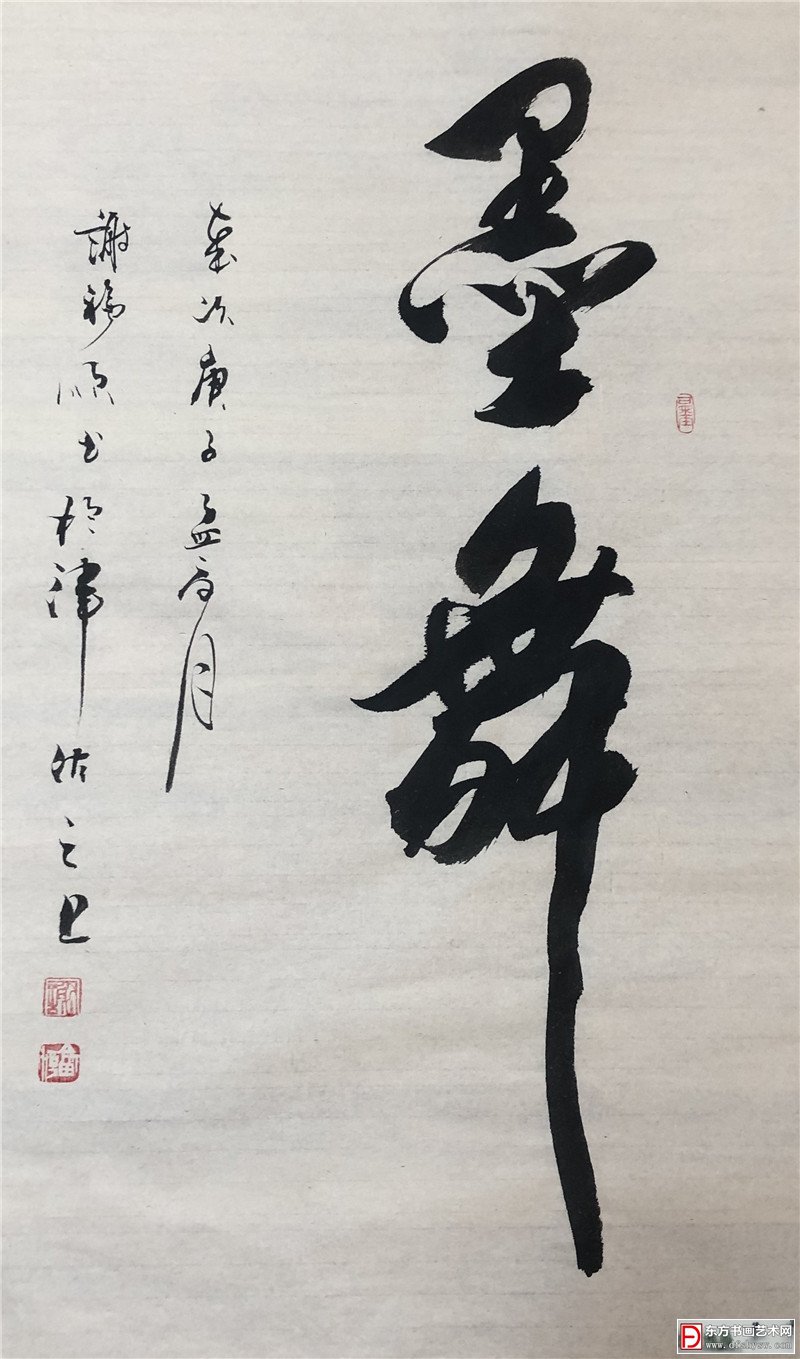 墨舞
岁次庚子孟夏月
謝福順书於津沽之

东方书画艺术网
www.dfshysw.com